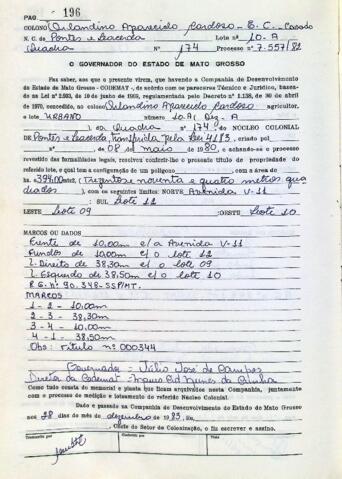 PAG. 196
COLONO Orlandino Aparecido Cardoso - B. C. - Casado
N. C. de Pontes e Lacerda Lote nº 10. A
Quadra Nº 174 Processo nº 7.557/82
O GOVERNADOR DO ESTADO DE MATO GROSSO
Faz saber, aos que o presente virem, que havendo a Companhia de Desenvolvimento
do Estado de Mato Grosso - CODEMAT -, de acordo com os pareceres Técnico e Jurídico, basea-
da na Lei nº 2.903, de 19 de junho de 1969, regulamentada pelo Decreto nº 1.138, de 30 de abril
de 1970, concedido, ao colono Orlandino Aparecido Cardoso agricultor,
o lote URBANO número 10. A
Quadra nº 174 do NÚCLEO COLONIAL
DE Pontes e Lacerda, criado pel
nº de 08 de maio de 1980, e achando-se o processo
revestido das formalidades legais, resolveu conferir-lhe o presente título de propriedade do
referido lote, e qual tem a configuração de um polígono com a área de
394.00 (Trezentos e noventa e quatro metros qua
drados), com os seguintes limites: NORTE Avenida V-11
SUL Lote 12
LESTE Lote 09 OESTE Lote 10
MARCOS OU DADOS
Frente de 10,00m c/a Avenida V-11
Fundos de 10,00m c/o lote 12
L. Direito de 38,30m c/o lote 09
L. Esquerdo de 38,50m c/o lote 10
R.G. nº 90.348-SSP/MT.
MARCOS
1 - 2 - 10,00m
2 - 3 - 38,30m
3 - 4 - 10,00m
4 - 1 - 38,50m
Obs: título nº 000344
Governador = Júlio José de Campos
Cunha
Como tudo consta do memorial e planta que ficam arquivados nesta Companhia, juntamente
com o processo de medição e loteamento do referido Núcleo Colonial.
Dado e passado na Companhia de Desenvolvimento do Estado de Mato Grosso
aos 28 dias do mês de dezembro de 1983. Eu
Chefe do Setor de Colonização, o fiz escrever e assino.